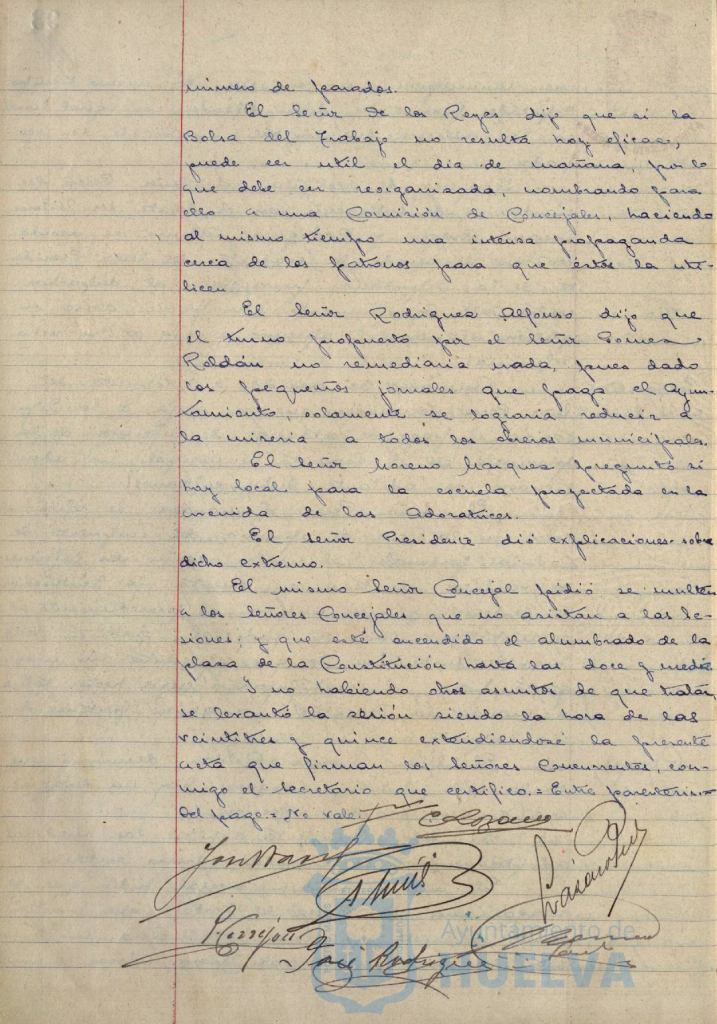 número de parados.
El Señor de los Reyes dijo que si la
Bolsa del Trabajo no resulta hoy eficaz,
puede ser util el dia de mañana, por lo
que debe ser reorganizada, nombrando para
ello a una Comisión de Concejales, haciendo
al mismo tiempo una intensa propaganda
cerca de los patronos para que éstos la uti-
licen.
El Señor Rodriguez Alfonso dijo que
el turno propuesto por el Señor Gomez
Roldán no remediaria nada, pues dado
los pequeños jornales que paga el Ayun-
tamiento, solamente se lograria reducir a
la miseria a todos los obreros municipales.
El Señor Moreno Maiquez preguntó si
hay local para la escuela proyectada en la
avenida de las Adoratrices.
El Señor Presidente dió explicaciones sobre
dicho extremo.
El mismo Señor Concejal pidió se multen
a los Señores Concejales que no asistan a las Se-
siones; y que esté encendido el alumbrado de la
plaza de la Constitución hasta las doce y media.
Y no habiendo otros asuntos de que tratar,
se levantó la sesión siendo la hora de las
veintitres y quince extendiéndose la presente
acta que firman los Señores Concurrentes, con-
migo el Secretario que certifico.= Entre parentesis=
del pago.= No vale.
C Lozano
José Rodriguez
Ayuntamiento de
HUELVA